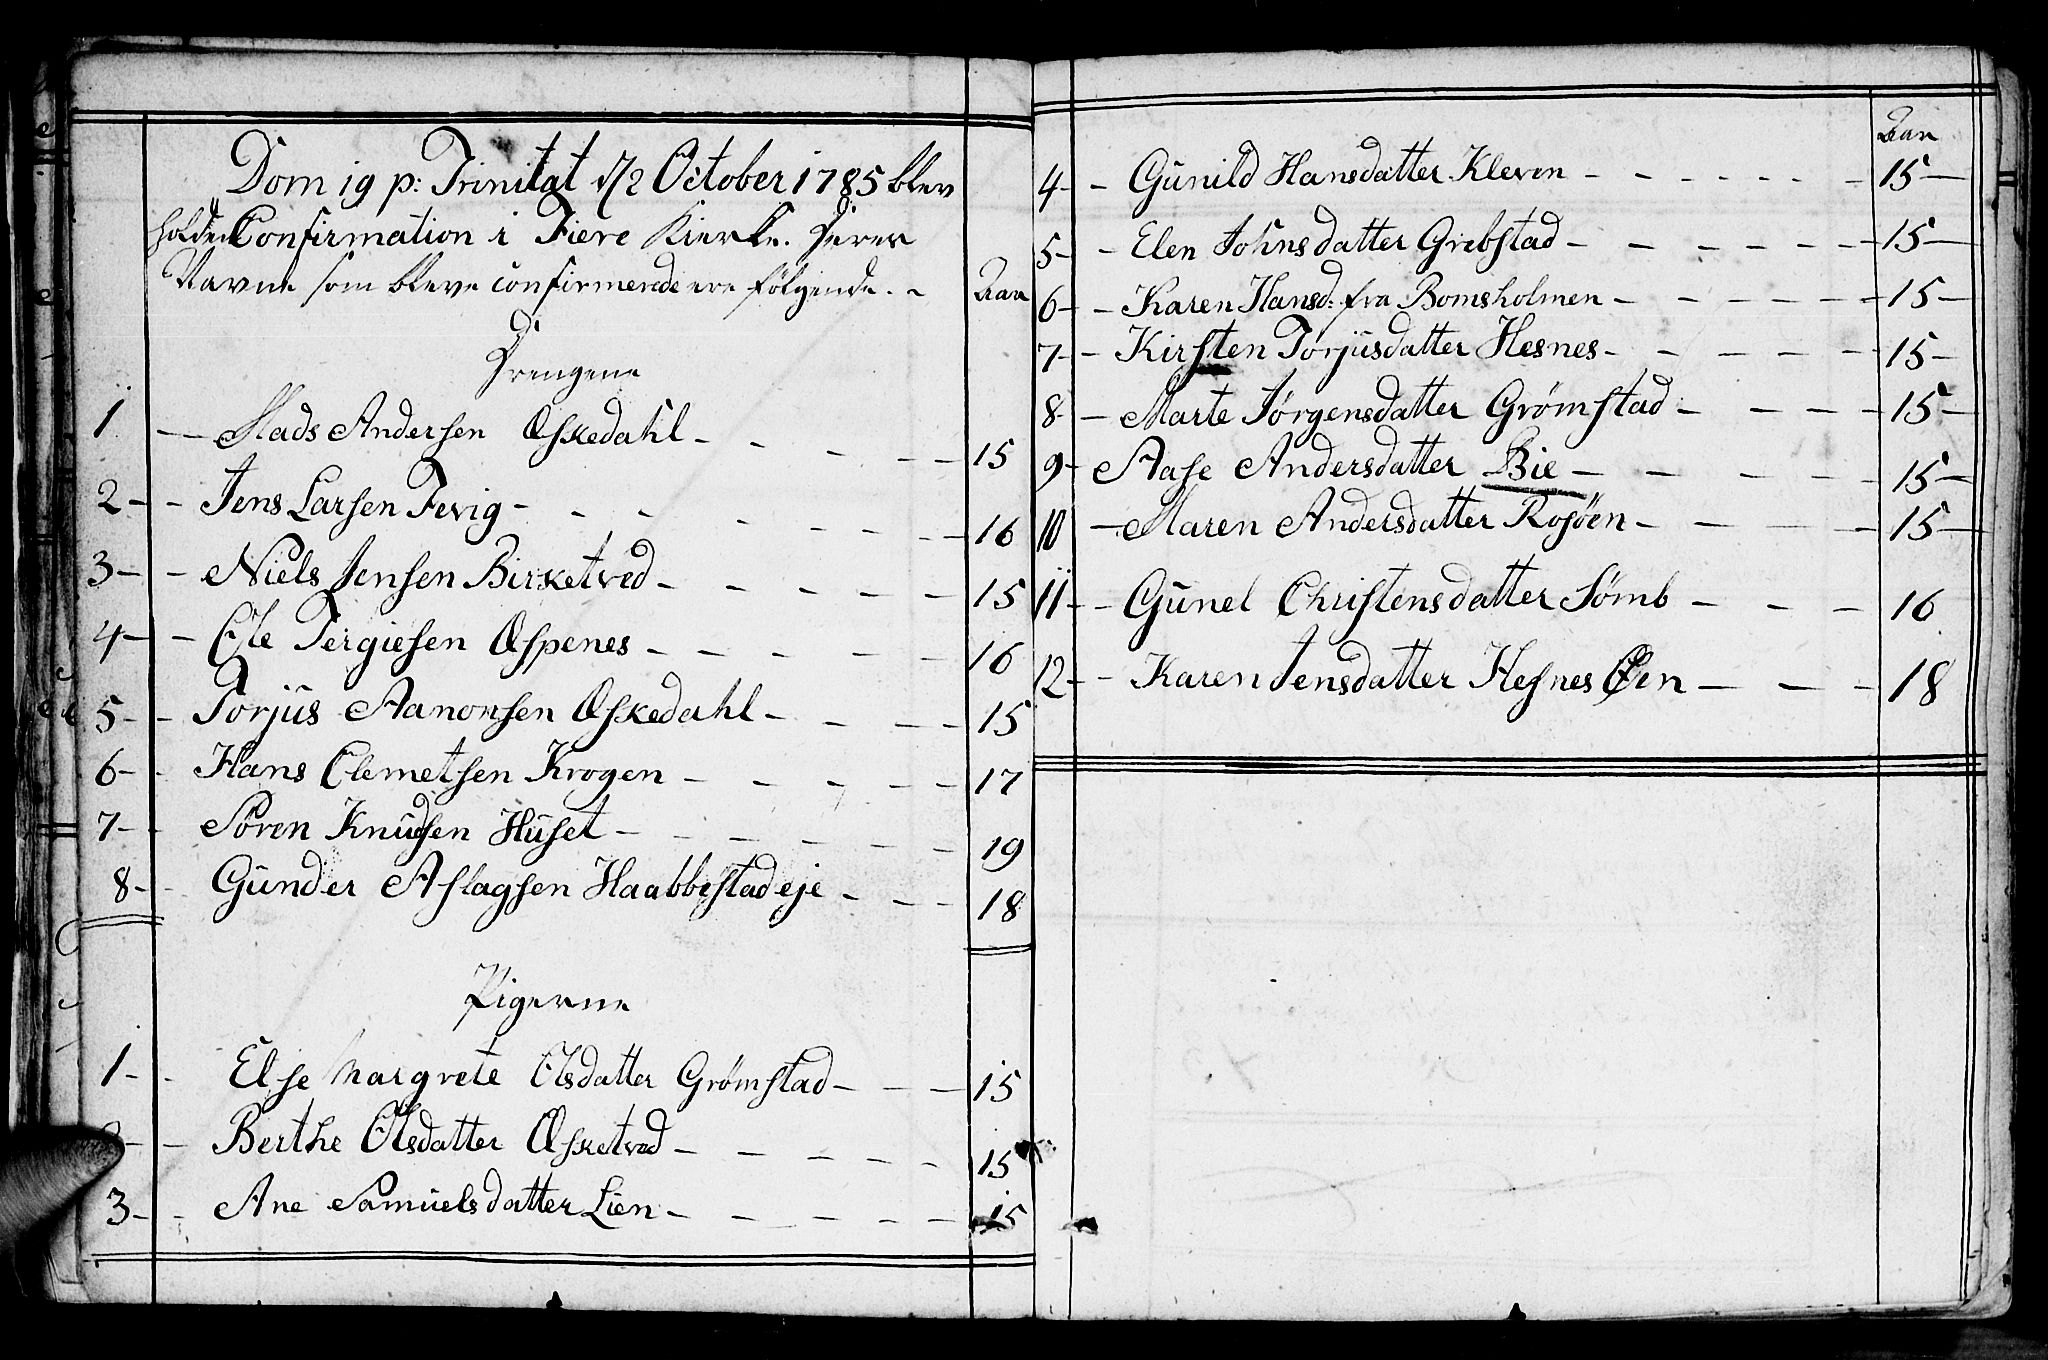 Dom 19 p: Trinitat d/2 October 1785 blev
holden Confirmation i Fiere Kierke. Deres
Navne som bleve confirmerede ere følgende. -
Aar
Drengene
1 - Mads Andersen Æskedahl - 15
2 - Jens Larsen Fevig - 16
3 - Niels Jensen Birketved - 15
4 - Ole Tergiesen Æspenes - 16
5 - Torjus Aanonsen Æskedahl - 15
6 - Hans Clemetsen Krogen - 17
7 - Søren Knudsen Huset - 19
8 - Gunder Aslagsen Haabbestad eje - 18
Pigerne
1 - Else Margrete Olsdatter Grømstad - 15
2 - Berthe Olsdatter Æsketved - 15
3 - Ane Samuelsdatter Lien - 15
Aar
4 - Gunild Hansdatter Kleven - 15
5 - Elen Johnsdatter Grebstad - 15
6 - Karen Hansd: fra Bomsholmen - 15
7 - Kirsten Torjusdatter Hesnes - 15
8 - Marte Jørgensdatter Grømstad - 15
9 - Aase Andersdatter Bie - 15
10 - Maren Andersdatter Rosøen - 15
11 - Gunel Christensdatter Sømb - 16
12 - Karen Jensdatter Hesnes Øen - 18